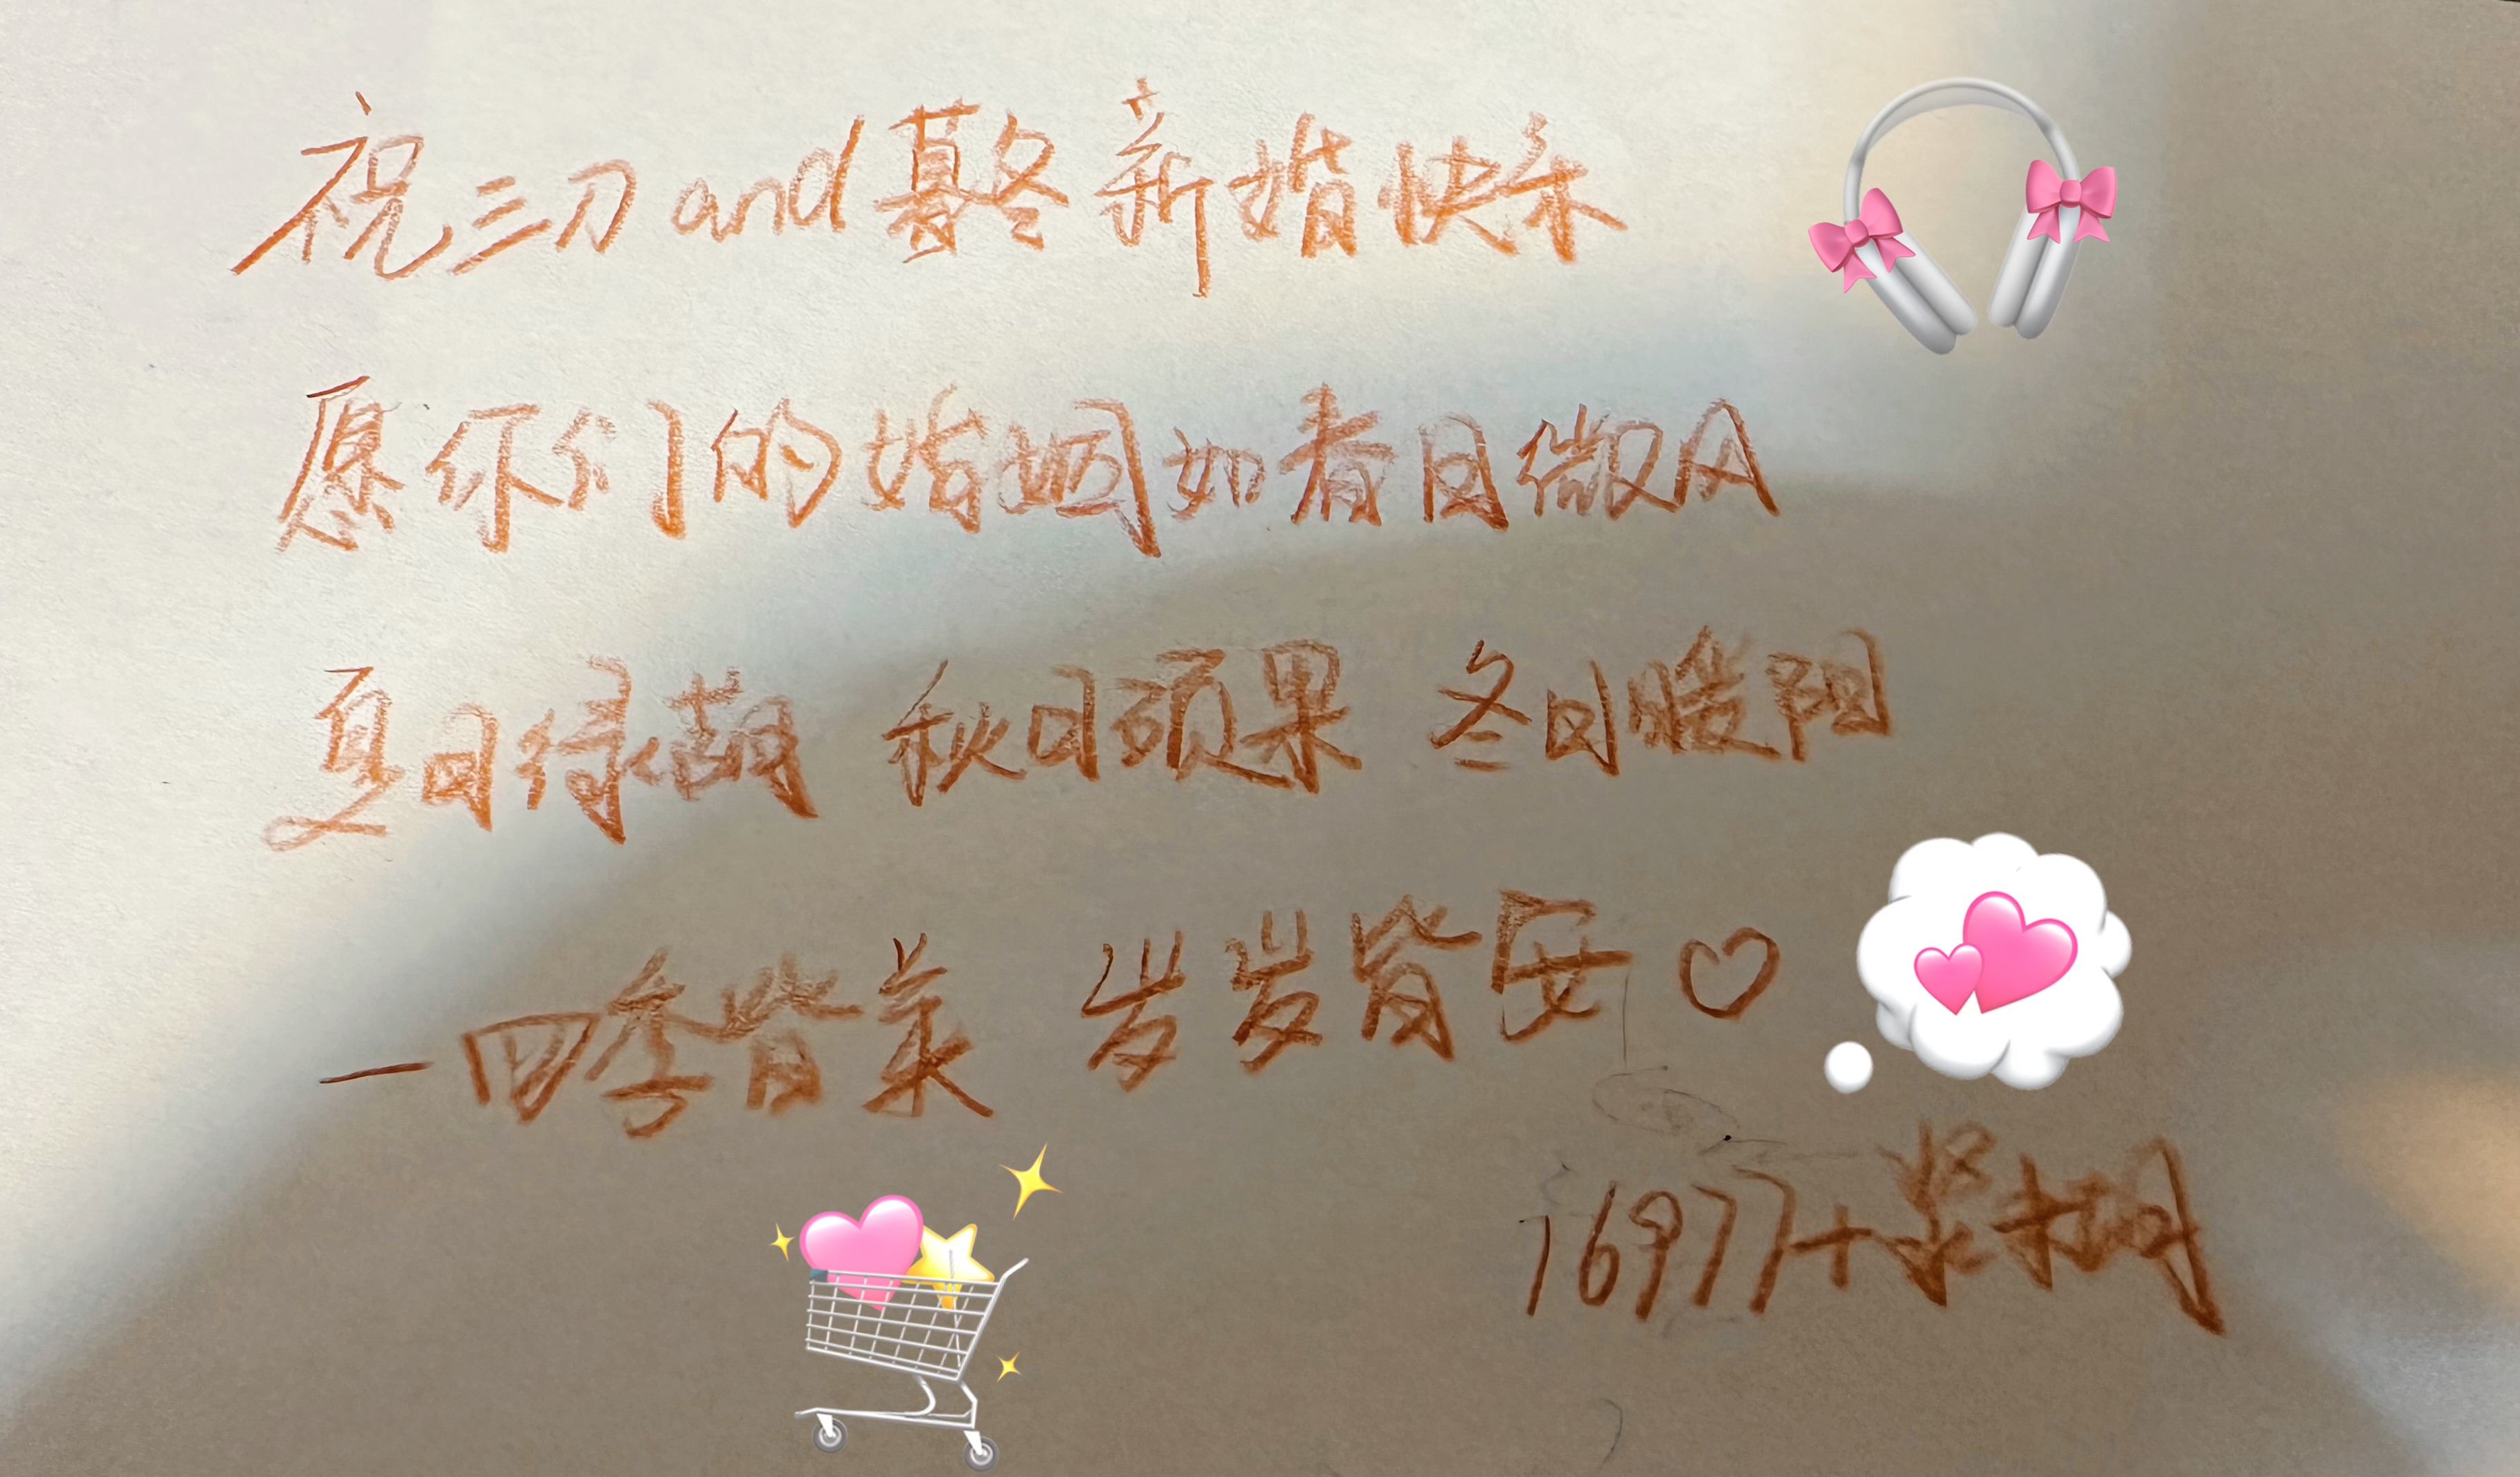 祝三刀and暮冬新婚快乐
愿你们的婚姻如春日微风
夏日绿荫 秋日硕果 冬日暖阳
一四季皆美 岁岁皆安♡
16977+浆糊